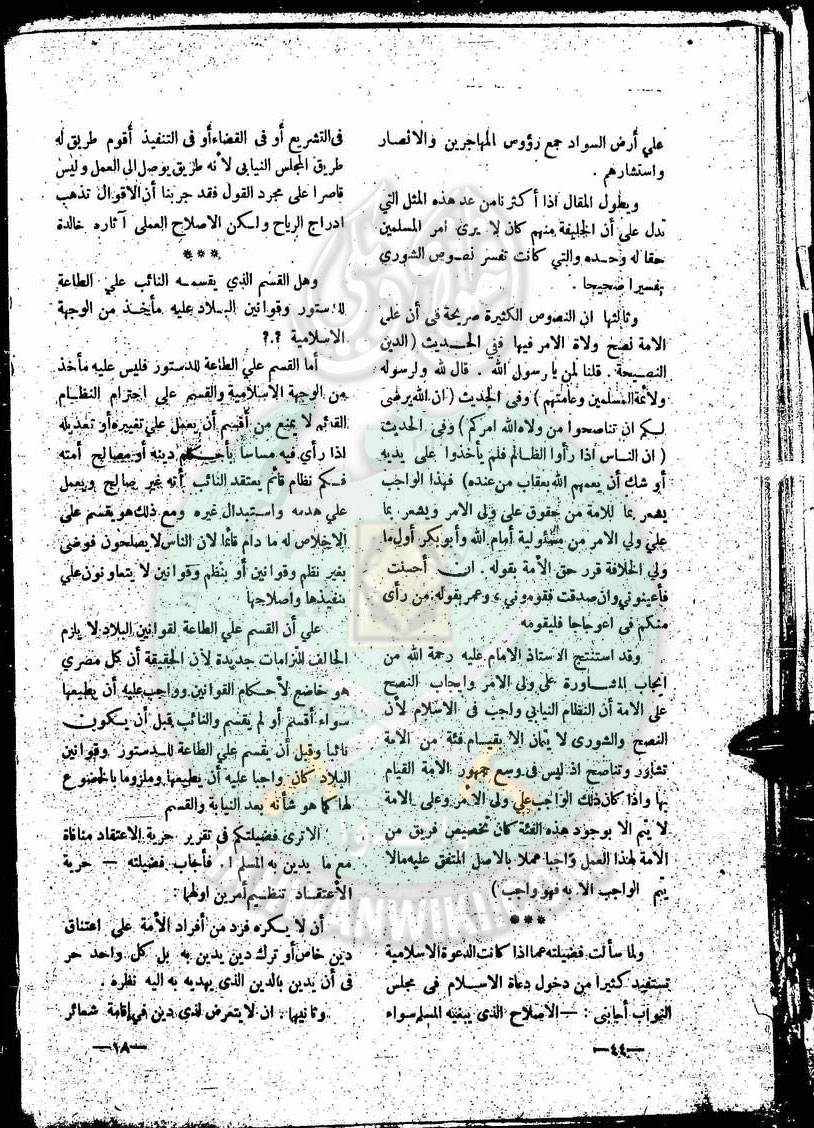 علي أرض السواد جمع رؤوس المهاجرين والانصار
واستشارهم .
ويطول المقال اذا أكثرنا من عد هذه المثل التي
تدل على أن الخليفة منهم كان لا يرى أمر المسلمين
حقا له وحده والتي كانت تفسر نصوص الشورى
تفسيرا صحيحا .
وثالثها ان النصوص الكثيرة صريحة فى أن على
الامة نصح ولاة الامر فيها ففي الحديث (الدين
النصيحة . قلنا لمن يا رسول الله . قال لله ولرسوله
ولأئمة المسلمين وعامتهم) وفى الحديث (ان الله يرضى
لكم ان تناصحوا من ولاه الله امركم) وفى الحديث
(ان الناس اذا رأوا الظالم فلم يأخذوا على يديه
أو شك أن يعمهم الله بعقاب من عنده) فهذا الواجب
يشعر بما للامة من حقوق على ولى الامر ويشعر بما
علي ولي الامر من مسئولية أمام الله وأبو بكر أول ما
ولي الخلافة قرر حق الأمة بقوله . ان أحسنت
فأعينوني وان صدفت فقوموني ، وعمر بقوله من رأى
منكم فى اعوجاجا فليقومه
وقد استنتج الاستاذ الامام عليه رحمة الله من
ايجاب المشاورة على ولى الامر وايجاب النصح
على الامة أن النظام النيابي واجب فى الاسلام لأن
النصح والشورى لا يتمان الا بقيام فئة من الامة
تشاور وتناصح اذ ليس فى وسع جمهور الأمة القيام
بها واذا كان ذلك الواجب علي ولى الأمر وعلى الامة
لا يتم الا بوجود هذه الفئة كان تخصيص فريق من
الامة لهذا العمل واجبا عملا بالاصل المتفق عليه مالا
يتم الواجب الا به فهو واجب)
***
ولما سألت فضيلته عما اذا كانت الدعوة الاسلامية
تستفيد كثيرا من دخول دعاة الاسلام فى مجلس
النواب أجابنى : — الاصلاح الذى يبغيه المسلم سواء
—٤٤—
فى التشريع أو فى القضاء أو فى التنفيذ أقوم طريق له
طريق المجلس النيابى لأنه طريق يوصل الى العمل وليس
قاصرا على مجرد القول فقد جربنا أن الاقوال تذهب
ادراج الرياح ولكن الاصلاح العملى آثاره خالدة
***
وهل القسم الذي يقسمه النائب علي الطاعة
للدستور وقوانين البلاد عليه مأيخذ من الوجهة
الاسلامية ؟.؟
أما القسم علي الطاعة للدستور فليس عليه مأخذ
من الوجهة الاسلامية والقسم علي احترام النظام
القائم لا يمنع من أقسم أن يعمل علي تغييره أو تعديله
اذا رأي فيه مساسا بأحكام دينه أو مصالح أمته
فكم نظام قائم يعتقد النائب أنه غير صالح ويعمل
علي هدمه واستبدال غيره ومع ذلك هو يقسم على
الاخلاص له ما دام قائما لان الناس لا يصلحون فوضى
بغير نظم وقوانين أو بنظم وقوانين لا يتعاونون علي
تنفيذها واصلاحها
علي أن القسم علي الطاعة لقوانين البلاد لا يلزم
الحالف التزامات جديدة لأن الحقيقة أن كل مصري
هو خاضع لأحكام القوانين وواجب عليه أن يطيعها
سواء أقسم أو لم يقسم والنائب قبل أن يكون
نائبا وقبل أن يقسم علي الطاعة للدستور وقوانين
البلاد كان واجبا عليه أن يطيعها وملزوما بالخضوع
لها كما هو شأنه بعد النيابة والقسم
الا ترى فضيلتكم فى تقرير حرية الاعتقاد منافاة
مع ما يدين به المسلم ؟ . فأجاب فضيلته — حرية
الأعتقاد تنظيم أمرين اولهما :
أن لا يكره فرد من أفراد الأمة علي اعتناق
دين خاص أو ترك دين يدين به بل كل واحد حر
فى أن يدين بالدين الذى يهديه به اليه نظره .
وثانيها . ان لا يتعرض لذى دين فى إقامة شعائر
—١٨—
IKHWANWIKI.COM
وأعدوا